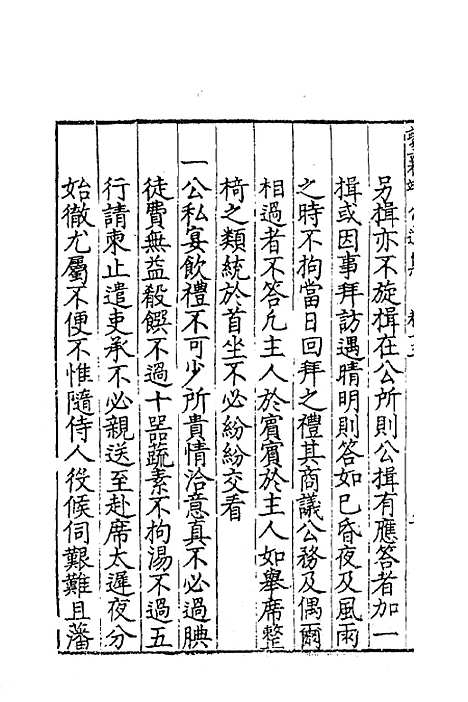 另揖亦不旋揖在公所則公揖有應答者加一
揖或因事拜訪遇晴明則答如已昏夜及風雨
之時不拘當日回拜之禮其商議公務及偶爾
相過者不答凢主人於賓賓於主人如舉席整
椅之類統於首坐不必紛紛交看
一公私宴飲禮不可少所貴情洽意真不必過腆
徒費無益殽饌不過十器蔬素不拘湯不過五
行請柬止遣吏承不必親送至赴席太遲夜分
始徹尤屬不便不惟隨侍人役候伺艱難且藩